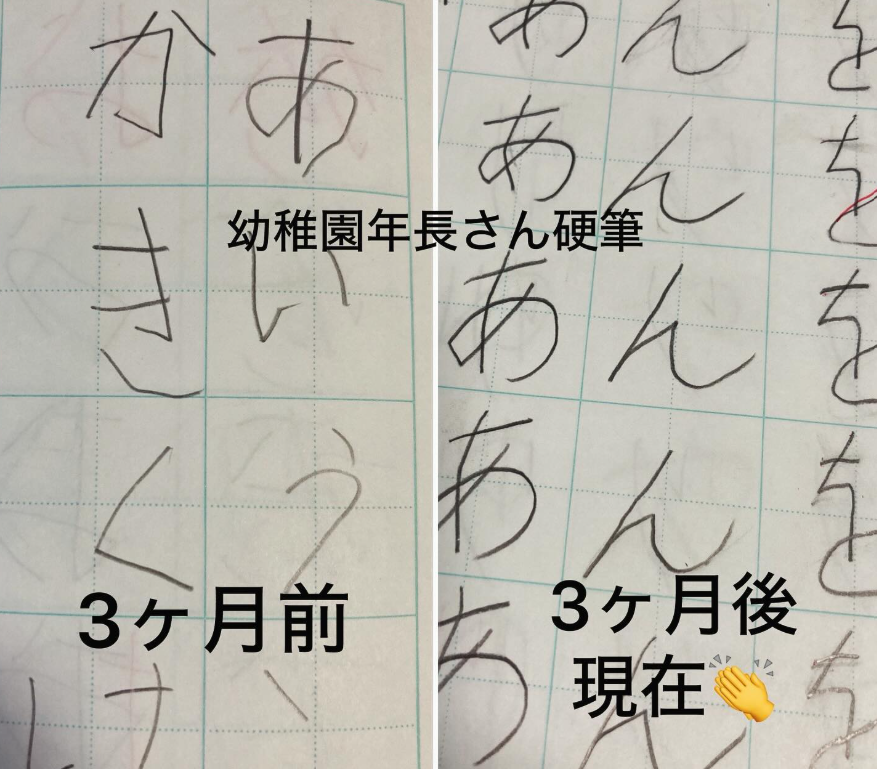 幼稚園年長さん硬筆
あいう
かきくけ
3ヶ月前
をををを を
んんんんん
あああああ
3ヶ月後
現在👏